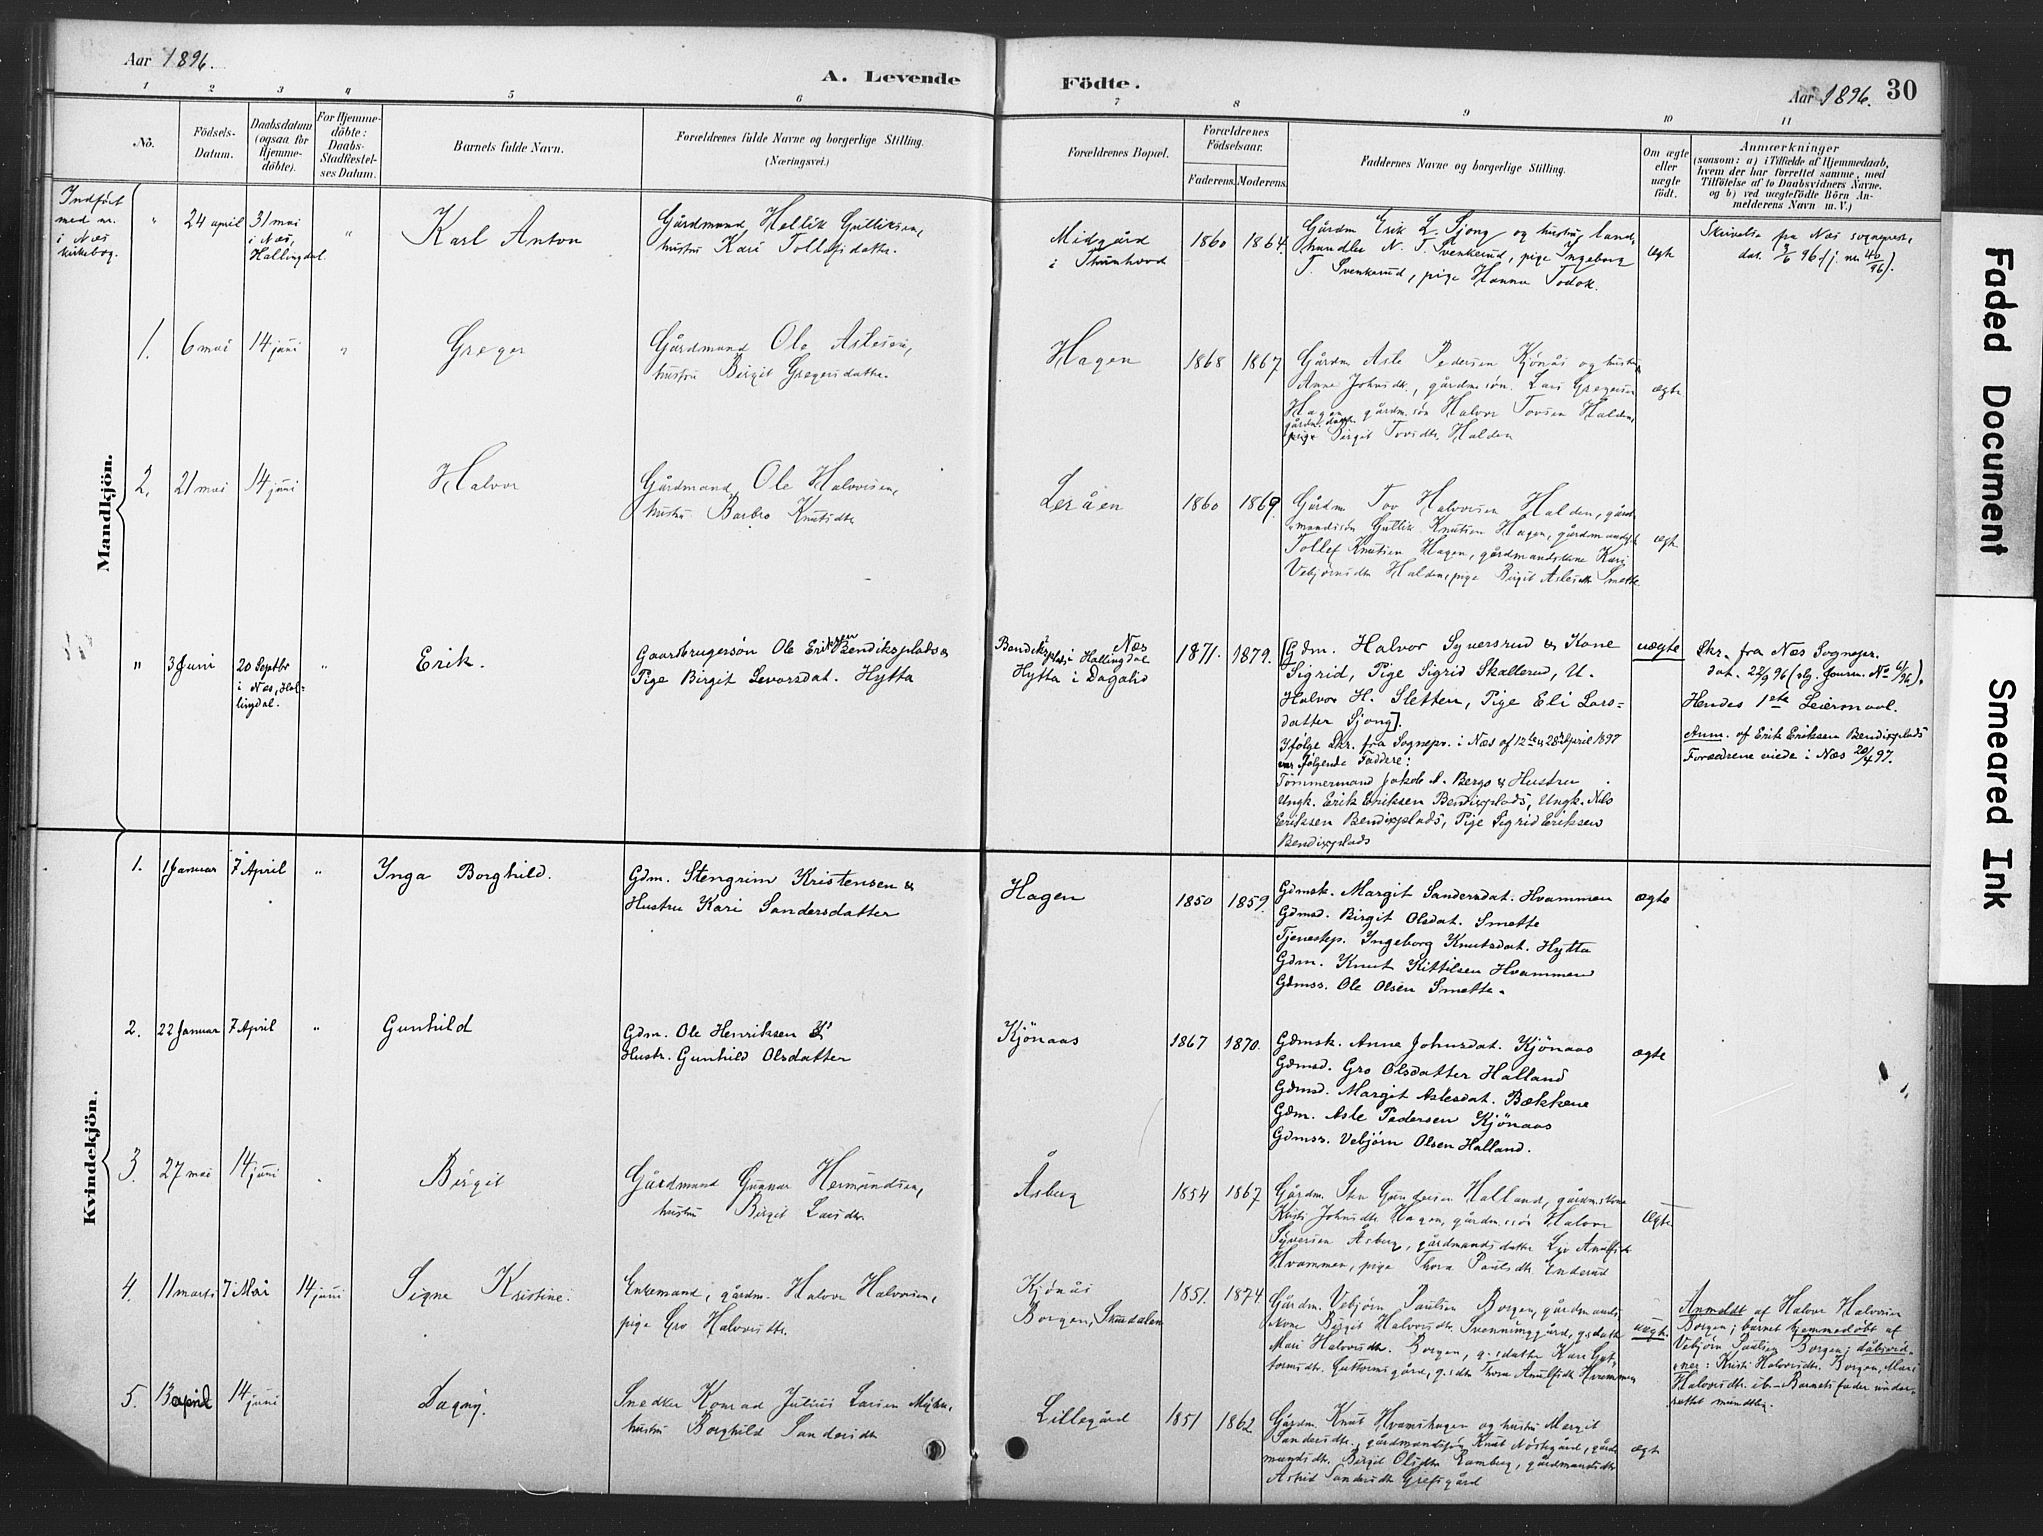 Aar 1896.
A. Levende
Födte.
Aar 1896.
30
1
2
3
4
5
6
7
8
9
10
11
No.
Födsels-
Datum.
Daabsdatum
(ogsaa for
Hjemme-
döbte).
For Hjemme-
döbte:
Daabs-
Stadfæstel-
ses Datum.
Barnets fulde Navn.
Forældrenes fulde Navne og borgerlige Stilling.
(Næringsvei.)
Forældrenes Bopæl.
Forældrenes
Födselsaar.
Faderens.
Moderens.
Faddernes Navne og borgerlige Stilling.
Om ægte
eller
uægte
födt.
Anmærkninger
(saasom: a) i Tilfælde af Hjemmedaab,
hvem der har forrettet samme, med
Tilföielse af to Daabsvidners Navne,
og b) ved uægtefödte Börn An-
melderens Navn m. V.)
Mandkjön.
Indført
med nr.
i Næs
kirkebog.
"
24 april
31 mai
i Næs,
Hallingdal.
"
Karl Anton
Gårdmand Hellik Gulliksen,
hustru Kari Tollefsdatter.
Midgård
i Thunhovd
1860
1864.
Gårdm Erik L. Sjong og hustru, land-
handler N. T. Svenkerud, pige Ingeborg
T. Svenkerud, pige Hanna Todok.
ægte
Skrivelse fra Næs sogneprest,
dat. 3/6 96 (j. nr. 40/96).
1.
6 mai
14 juni
"
Greger
Gårdmand Ole Aslesen,
hustru Birgit Gregersdatter.
Hagen
1868
1867
Gårdm Asle Pedersen Kjönås og hustru
Anne Johnsdtr, gårdmsön Lars Gregersen
Hagen, gårdm.sön Halvor Tovsen Halden,
gårdm. datter
pige Birgit Tovsdtr Halden
ægte
2.
21 mai
14 juni
Halvor
Gårdmand Ole Halvorsen,
hustru Barbro Knutsdtr
Leråen
1860
1869.
Gårdm Tov Halvorsen Halden, gård-
mandssön Gullik Knutsen Hagen, gårdmandss.
Tollef Knutsen Hagen, gårdmandskone Kari
Vebjörnsdtr Halden, pige Birgit Aslesdtr Smette
ægte
"
3 Juni
20 Septbr
i Næs, Hal-
lingdal.
"
Erik.
Gaardbrugersön Ole Eriksen Bendiksplads &
Pige Birgit Levorsdat. Hytta
Bendiksplads i Næs
Hallingdal
Hytta i Dagalid
1871.
1879.
[Gdm. Halvor Syversrud & Kone
Sigrid, Pige Sigrid Skallerud, U.
Halvor H. Sletten, Pige Eli Lars-
datter Sjong].
Ifølge Skr. fra Sognepr. i Næs af 12te & 28de April 1897
var følgende Faddere:
Tømmermand Jakob A. Berge & Hustru
Ungk. Erik Eriksen Bendixplads, Ungk. Nils
Eriksen Bendixplads, Pige Sigrid Eriksen
Bendixplads
uægte
Skr. fra Næs Sognepr.
dat. 22/9 96 (dg. Journ. No 6/96).
Hendes 1ste Leiermaal.
Anm. af Erik Eriksen Bendixplads
Forældrene viede i Næs 20/4 97.
Kvindekjön.
1.
1 Januar
7 April
"
Inga Borghild.
Gdm. Stengrim Kristensen &
Hustru Kari Sandersdatter
Hagen
1850
1859.
Gdmsk. Margit Sandersdat. Hvammen
Gdmsd. Birgit Olsdat. Smette
Tjenestep. Ingeborg Knutsdat. Hytta
Gdm. Knut Kittilsen Hvammen
Gdmss. Ole Olsen Smette.
ægte
2.
22 Januar
7 April
"
Gunhild
Gdm. Ole Henriksen &
Hustr. Gunhild Olsdatter
Kjönaas
1867
1870.
Gdmsk. Anna Johnsdat. Kjönaas
Gdmsd. Gro Olsdatter Halland
Gdmsd. Margit Aslesdat. Bækkene
Gdm. Asle Pedersen Kjönaas
Gdmss. Vebjørn Olsen Halland.
ægte
3.
27 mai
14 juni
Birgit
Gårdmand Gunnar Hermundsen,
hustru Birgit Larsdtr
Åsberg
1854
1867
Gårdm. Sten Gundersen Halland, gårdm.skone
Kristi Johnsdtr Hagen, gårdm.sön Halvor
Syversen Åsberg, gårdmandsdatter Liv Arnulfsdtr
Hvammen, pige Thora Paulsdtr Enderud
Ægte
4.
11 marts
7 Mai
14 juni
Signe Kristine.
Enkemand, gårdm. Halvor Halvorsen,
pige Gro Halvorsdtr.
Kjönås
Borgen, Skurdalen
1851.
1874
Gårdm. Vebjörn Paulsen Borgen, gårdmands-
kone Birgit Halvorsdtr. Svenninggård, g.sdatter
Mari Halvorsdtr. Borgen, g.sdatter Kari Gut-
tormsdtr. Guttormsgård, g.sdtr Thora Arnulfsdtr Hvammen
uægte.
Anmeldt af Halvor Halvorsen
Borgen; barnet hjemmedöbt af
Vebjörn Paulsen Borgen; dåbsvid-
ner: Kristi Halvorsdtr. Borgen, Mari
Halvorsdtr. ib. – Barnets fader under-
rettet mundtlig.
5.
13 april
14 juni
Dagny.
Snedker Konrad Julius Larsen Myhre,
hustru Borghild Sandersdtr
Lillegård
1851
1862
Gårdm. Knut Hvamshagen og hustru Margit
Sandersdtr., gårdmandssön Knut Nöstegård, gård-
mandsdtr. Birgit Olsdtr Ramberg, gårdmandsdtr
Astrid Sandersdtr Grefsgård
ægte
Faded Document
Smeared Ink